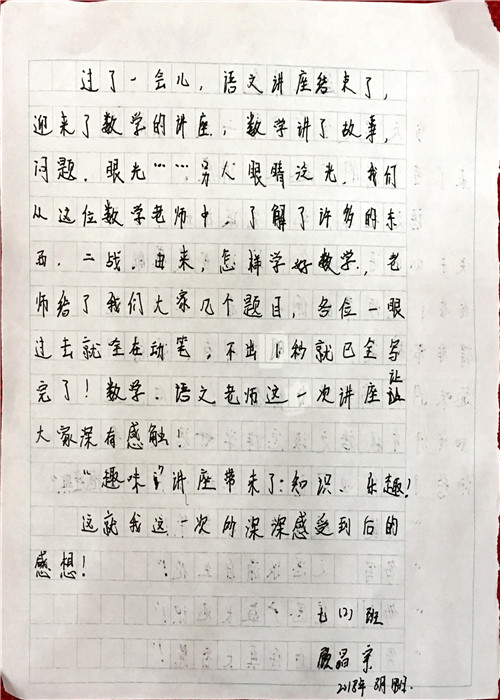 过了一会儿，语文讲座结束了，
迎来了数学的讲座，数学讲了故事，
问题．眼光……另人眼睛泛光．我们
从这位数学老师中，了解了许多的东
西．二战．由来，怎样学好数学，老
师给了我们大家几个题目，各位一眼
过去就全在动笔，不出1秒就已全写
完了！数学、语文老师这一次讲座让
大家深有感触！
“趣味”讲座带来了：知识、乐趣！
这就我这一次的深深感受到后的
感想！
七（1）班
2018年